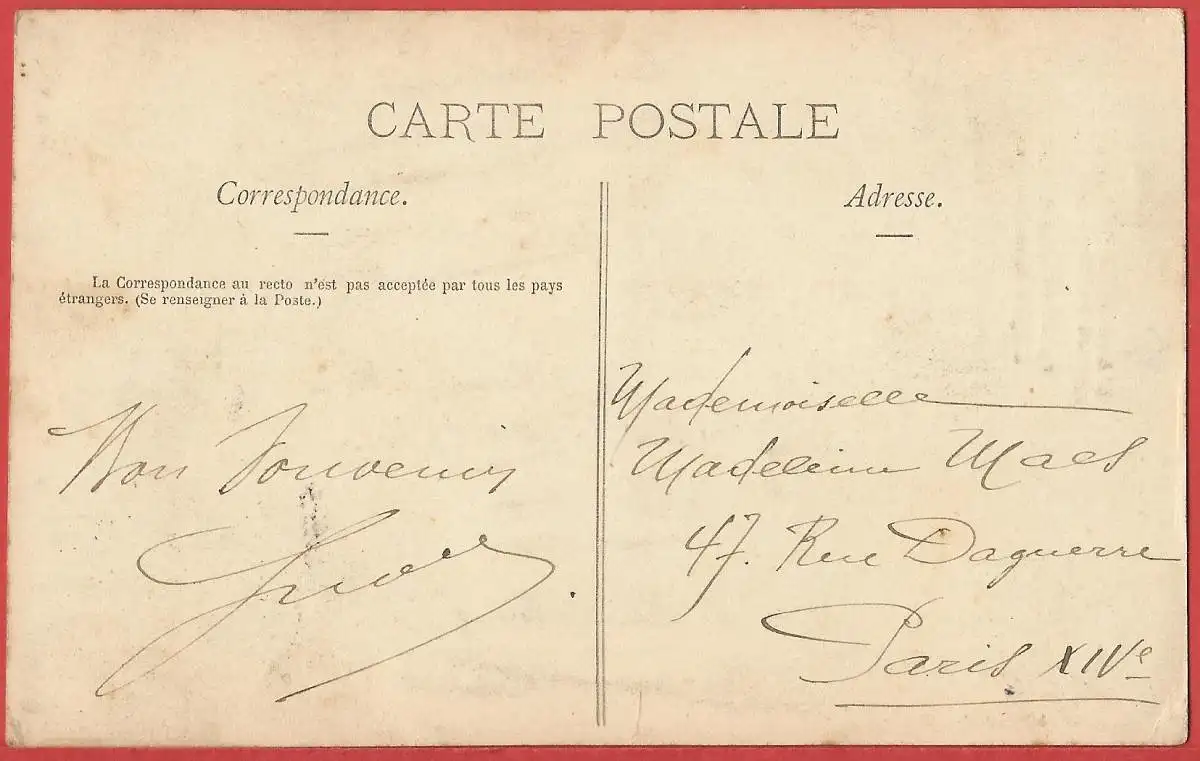 CARTE POSTALE
Correspondance.
La Correspondance au recto n'est pas acceptée par tous les pays
étrangers. (Se renseigner à la Poste.)
Bon Souvenir
Adresse.
Mademoiselle
Madeleine Maes
47. Rue Daguerre
Paris XIVe